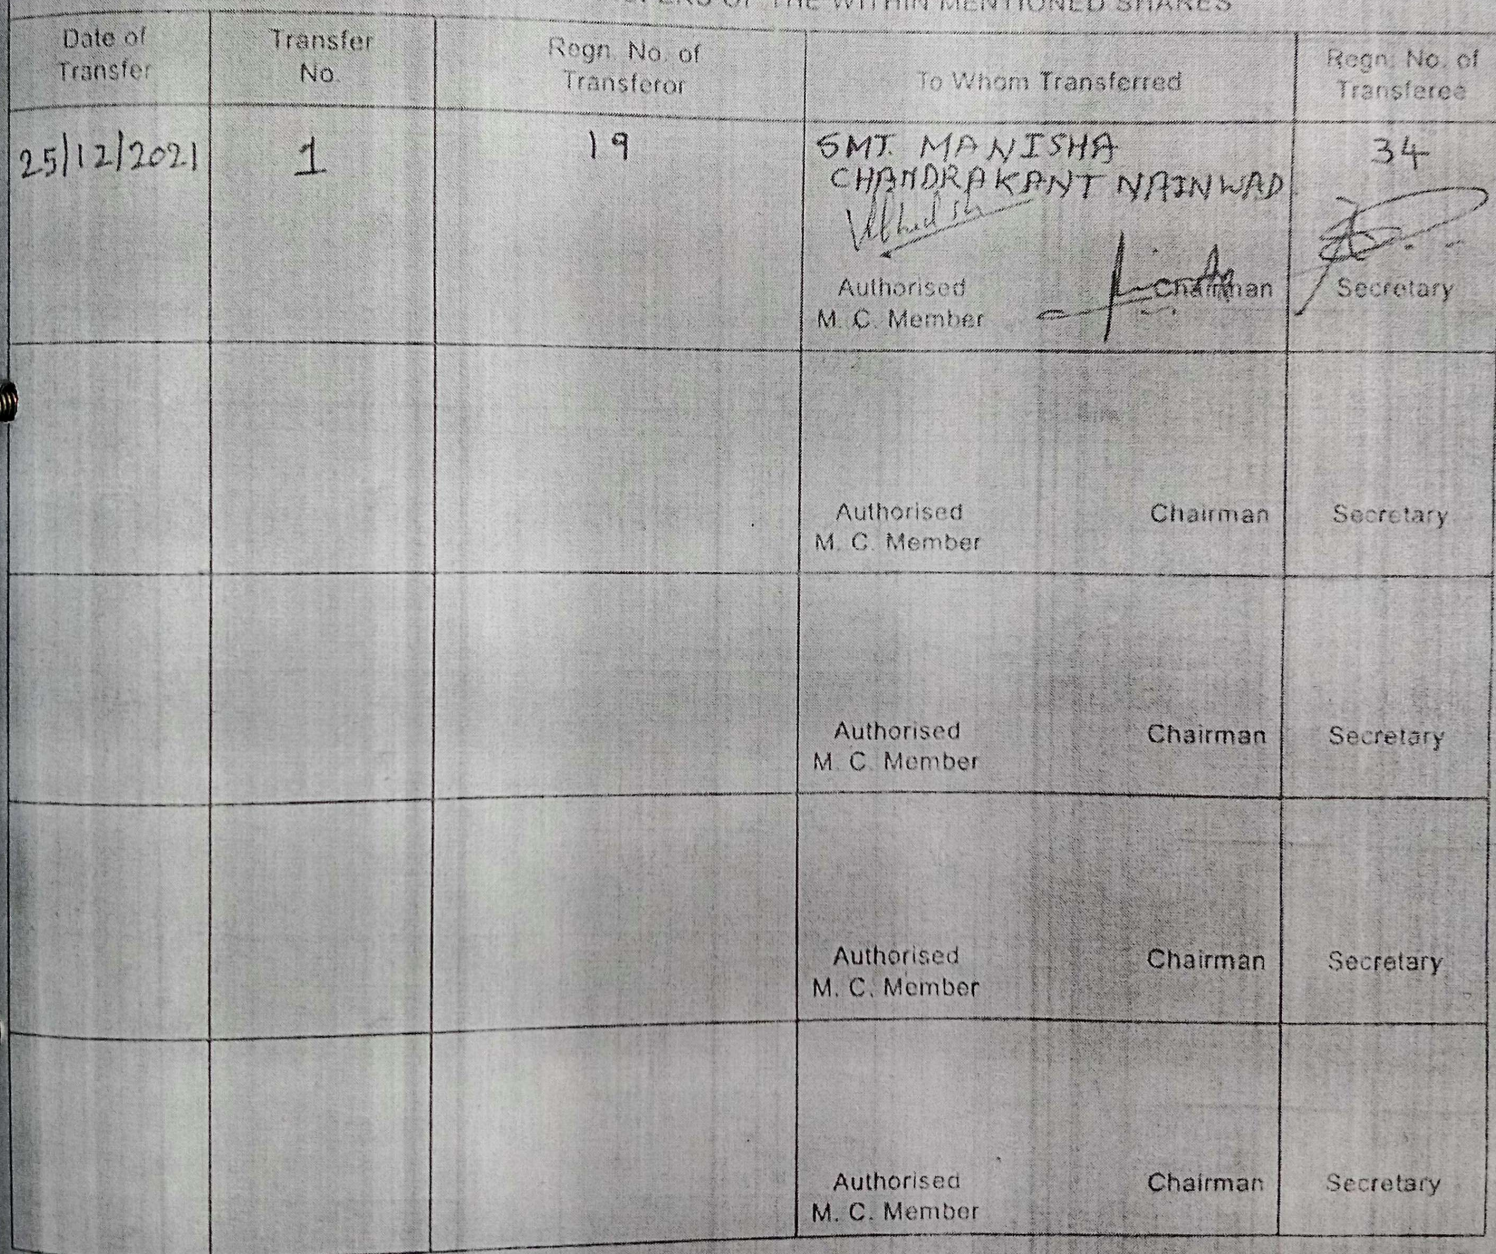 OF THE WITHIN MENTIONED SHARES
Date of Transfer
Transfer No.
Regn. No. of Transferor
To Whom Transferred
Regn. No. of Transferee
25/12/2021
1
19
SMT. MANISHA
CHANDRAKANT NAINWAD
34
Authorised
M. C. Member
Chairman
Secretary
Authorised
M. C. Member
Chairman
Secretary
Authorised
M. C. Member
Chairman
Secretary
Authorised
M. C. Member
Chairman
Secretary
Authorised
M. C. Member
Chairman
Secretary